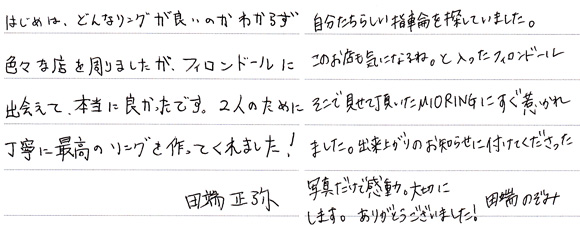 はじめは、どんなリングが良いのかわからず
色々な店を周りましたが、フィロンドールに
出会えて、本当に良かったです。2人のために
丁寧に最高のリングを作ってくれました!
田端 正弥
自分たちらしい指輪を探していました。
このお店も気になるね。と入ったフィロンドール
そこで見せて頂いたMIORINGにすぐ惹かれ
ました。出来上がりのお知らせに付けてくださった
写真だけで感動。大切に
します。ありがとうございました! 田端 のぞみ